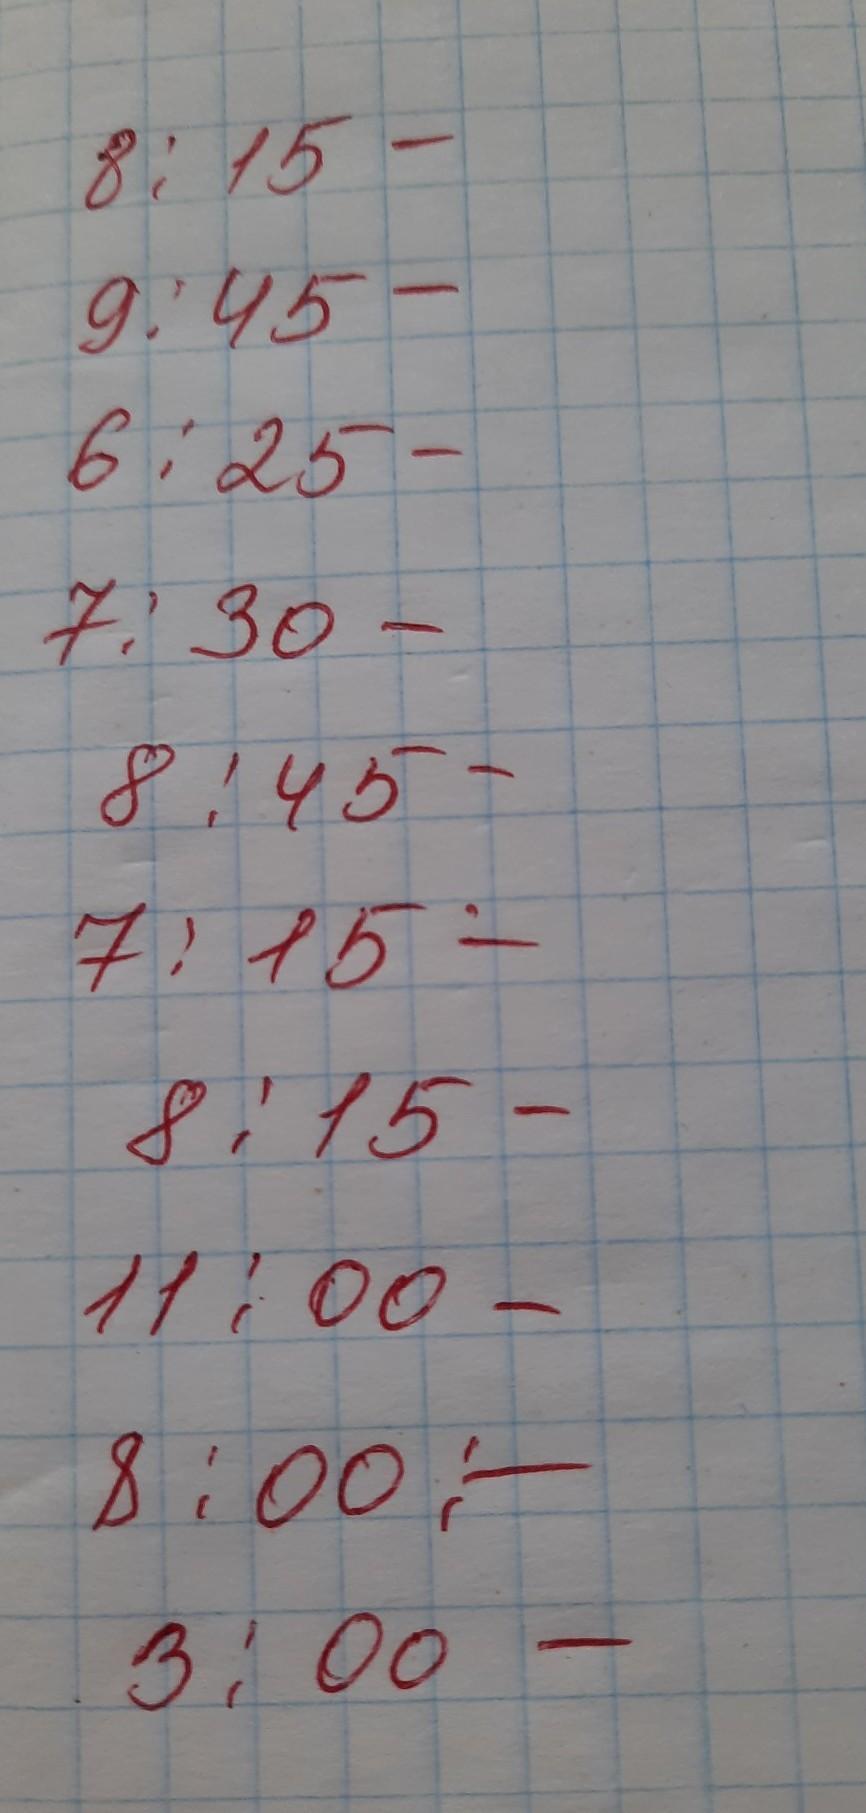 8:15 -
9:45 -
6:25 -
7:30 -
8:45 -
7:15 -
8:15 -
11:00 -
8:00 :-
3:00 -